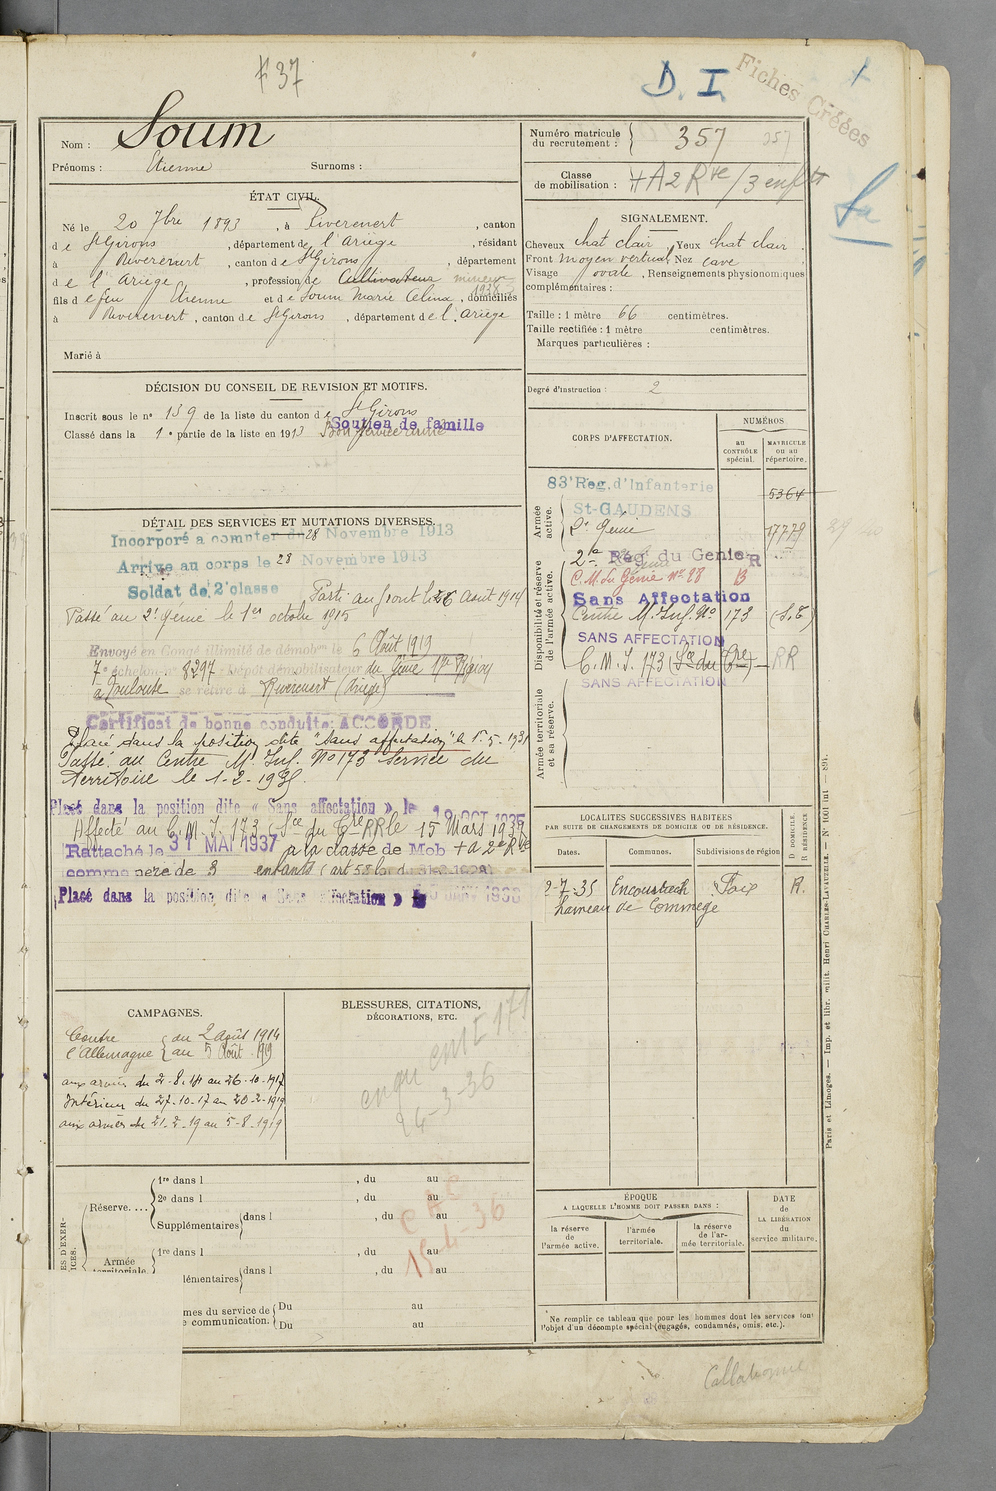 F 37
D. I.
Fiches Créées
Nom : Soum
Prénoms : Etienne Surnoms :
Numéro matricule du recrutement : 357 357
Classe de mobilisation : + A 2 Rve / 3 enfts
ÉTAT CIVIL.
Né le 20 7bre 1893, à Riverenert, canton
de St Girons, département de l'Ariège, résidant
à Riverenert, canton de St Girons, département
de l'Ariège, profession de Cultivateur mineur
1938
fils de feu Etienne et de Soum Marie Celina, domiciliés
à Riverenert, canton de St Girons, département de l'Ariège
Marié à
SIGNALEMENT.
Cheveux chat clair, Yeux chat clair.
Front moyen vertical, Nez cave
Visage ovale, Renseignements physionomiques
complémentaires :
Taille : 1 mètre 66 centimètres.
Taille rectifiée : 1 mètre centimètres.
Marques particulières :
Degré d'instruction : 2
DÉCISION DU CONSEIL DE REVISION ET MOTIFS.
Inscrit sous le n° 139 de la liste du canton de St Girons
Classé dans la 1e partie de la liste en 1913 Bon service armé
Soutien de famille
DÉTAIL DES SERVICES ET MUTATIONS DIVERSES.
Incorporé à compter du 28 Novembre 1913
Arrivé au corps le 28 Novembre 1913
Soldat de 2e classe Parti au front le 26 Août 1914
Passé au 2e génie le 1er octobre 1915
Envoyé en Congé illimité de démobon le 6 Août 1919
7e échelon n° 8297 - Dépôt démobilisateur du Génie 17e Région
à Toulouse se retire à Riverenert (Ariège)
Certificat de bonne conduite: ACCORDÉ
Placé dans la position dite "Sans affectation" le 1-5-1931
Passé au Centre M. Inf. No 173 Service du
Territoire le 1-2-1935.
Placé dans la position dite « Sans affectation » le 19 OCT 1935
Affecté au C.M.I. 173 (Sce du Tre RR le 15 Mars 1937
Rattaché le 31 MAI 1937 à la classe de Mob + A 2e Rve
comme père de 3 enfants (art 58 loi du 31-3-1928)
Placé dans la position dite « Sans affectation »
CORPS D'AFFECTATION.
NUMÉROS
au CONTRÔLE spécial.
MATRICULE ou au répertoire.
Armée active.
83e Rég. d'Infanterie 5364
St-GAUDENS
2e Génie 17779
Disponibilité et réserve de l'armée active.
2e Rég du Génie R
C.M. du Génie No 28 B
Sans Affectation
Centre M. Inf. No 173 (S.T.)
SANS AFFECTATION
C.M.I. 173 (Sce du Tre) — RR
SANS AFFECTATION
Armée territoriale et sa réserve.
LOCALITÉS SUCCESSIVES HABITÉES
PAR SUITE DE CHANGEMENTS DE DOMICILE OU DE RÉSIDENCE.
Dates. Communes. Subdivisions de région
D DOMICILE. R RÉSIDENCE
2-7-35 Encourtiech Foix R.
hameau de Commege
CAMPAGNES.
Contre l'Allemagne { du 2 Août 1914
au 5 Août 1919
aux armées du 2-8-14 au 26-10-1917
Intérieur du 27-10-17 au 20-2-1919
aux armées du 21-2-19 au 5-8-1919
BLESSURES, CITATIONS,
DÉCORATIONS, ETC.
24-3-36
Réserve....
1re dans l , du au
2e dans l , du au
Supplémentaires { dans l , du au
Armée territoriale
1re dans l , du au
lémentaires { dans l , du au
mes du service de communication. { Du au
Du au
15-4-36
ÉPOQUE
A LAQUELLE L'HOMME DOIT PASSER DANS :
la réserve de l'armée active.
l'armée territoriale.
la réserve de l'armée territoriale.
DATE de LA LIBÉRATION du service militaire.
Ne remplir ce tableau que pour les hommes dont les services font
l'objet d'un décompte spécial (engagés, condamnés, omis, etc.).
Paris et Limoges. — Imp. et libr. milit. Henri CHARLES-LAVAUZELLE.